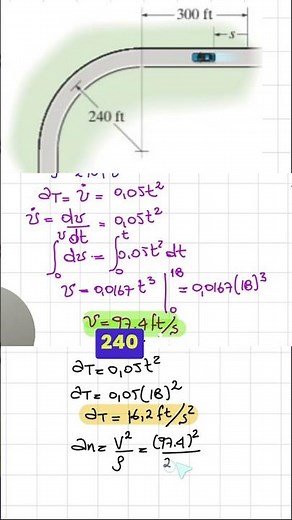 300 ft
s
240 ft
aT = v̇ = 0,05t²
v̇ = dv/dt = 0,05t²
∫₀ᵛ dv = ∫₀ᵗ 0,05t² dt
v = 0,0167t³ |₀¹⁸ = 0,0167(18)³
v = 97.4 ft/s
240
aT = 0,05t²
aT = 0,05(18)²
aT = 16,2 ft/s²
an = V²/ρ = (97.4)²/2